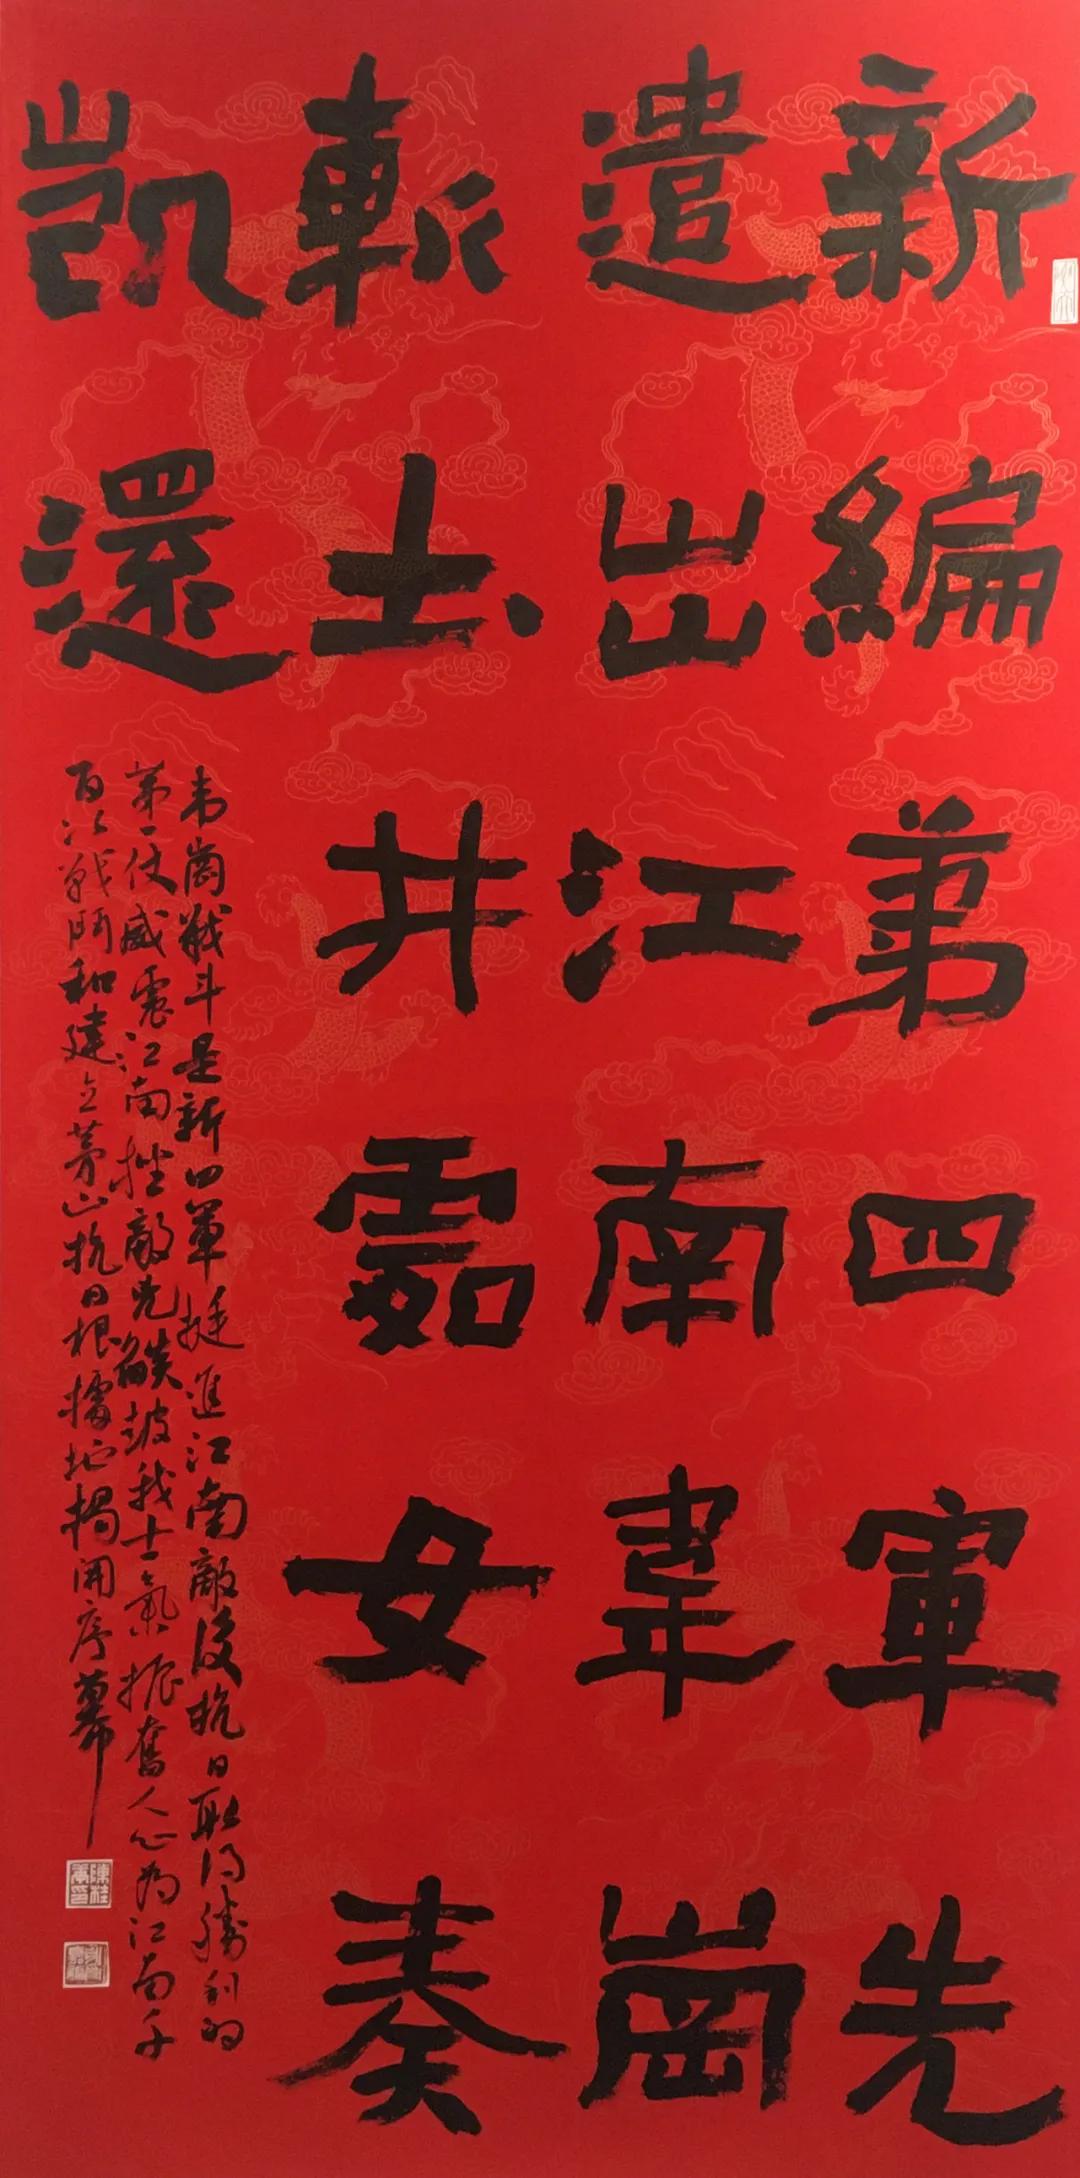 新編弟四軍先
遣出江南韋崗
斬土井處女奏
凱還
韦崗戰斗是新四軍挺進江南敵後抗日取得勝利的
第一仗威震江南挫敵兇燄鼓我士氣振奮人心為江南千
百次戰鬥和建立茅山抗日根據地揭開序幕